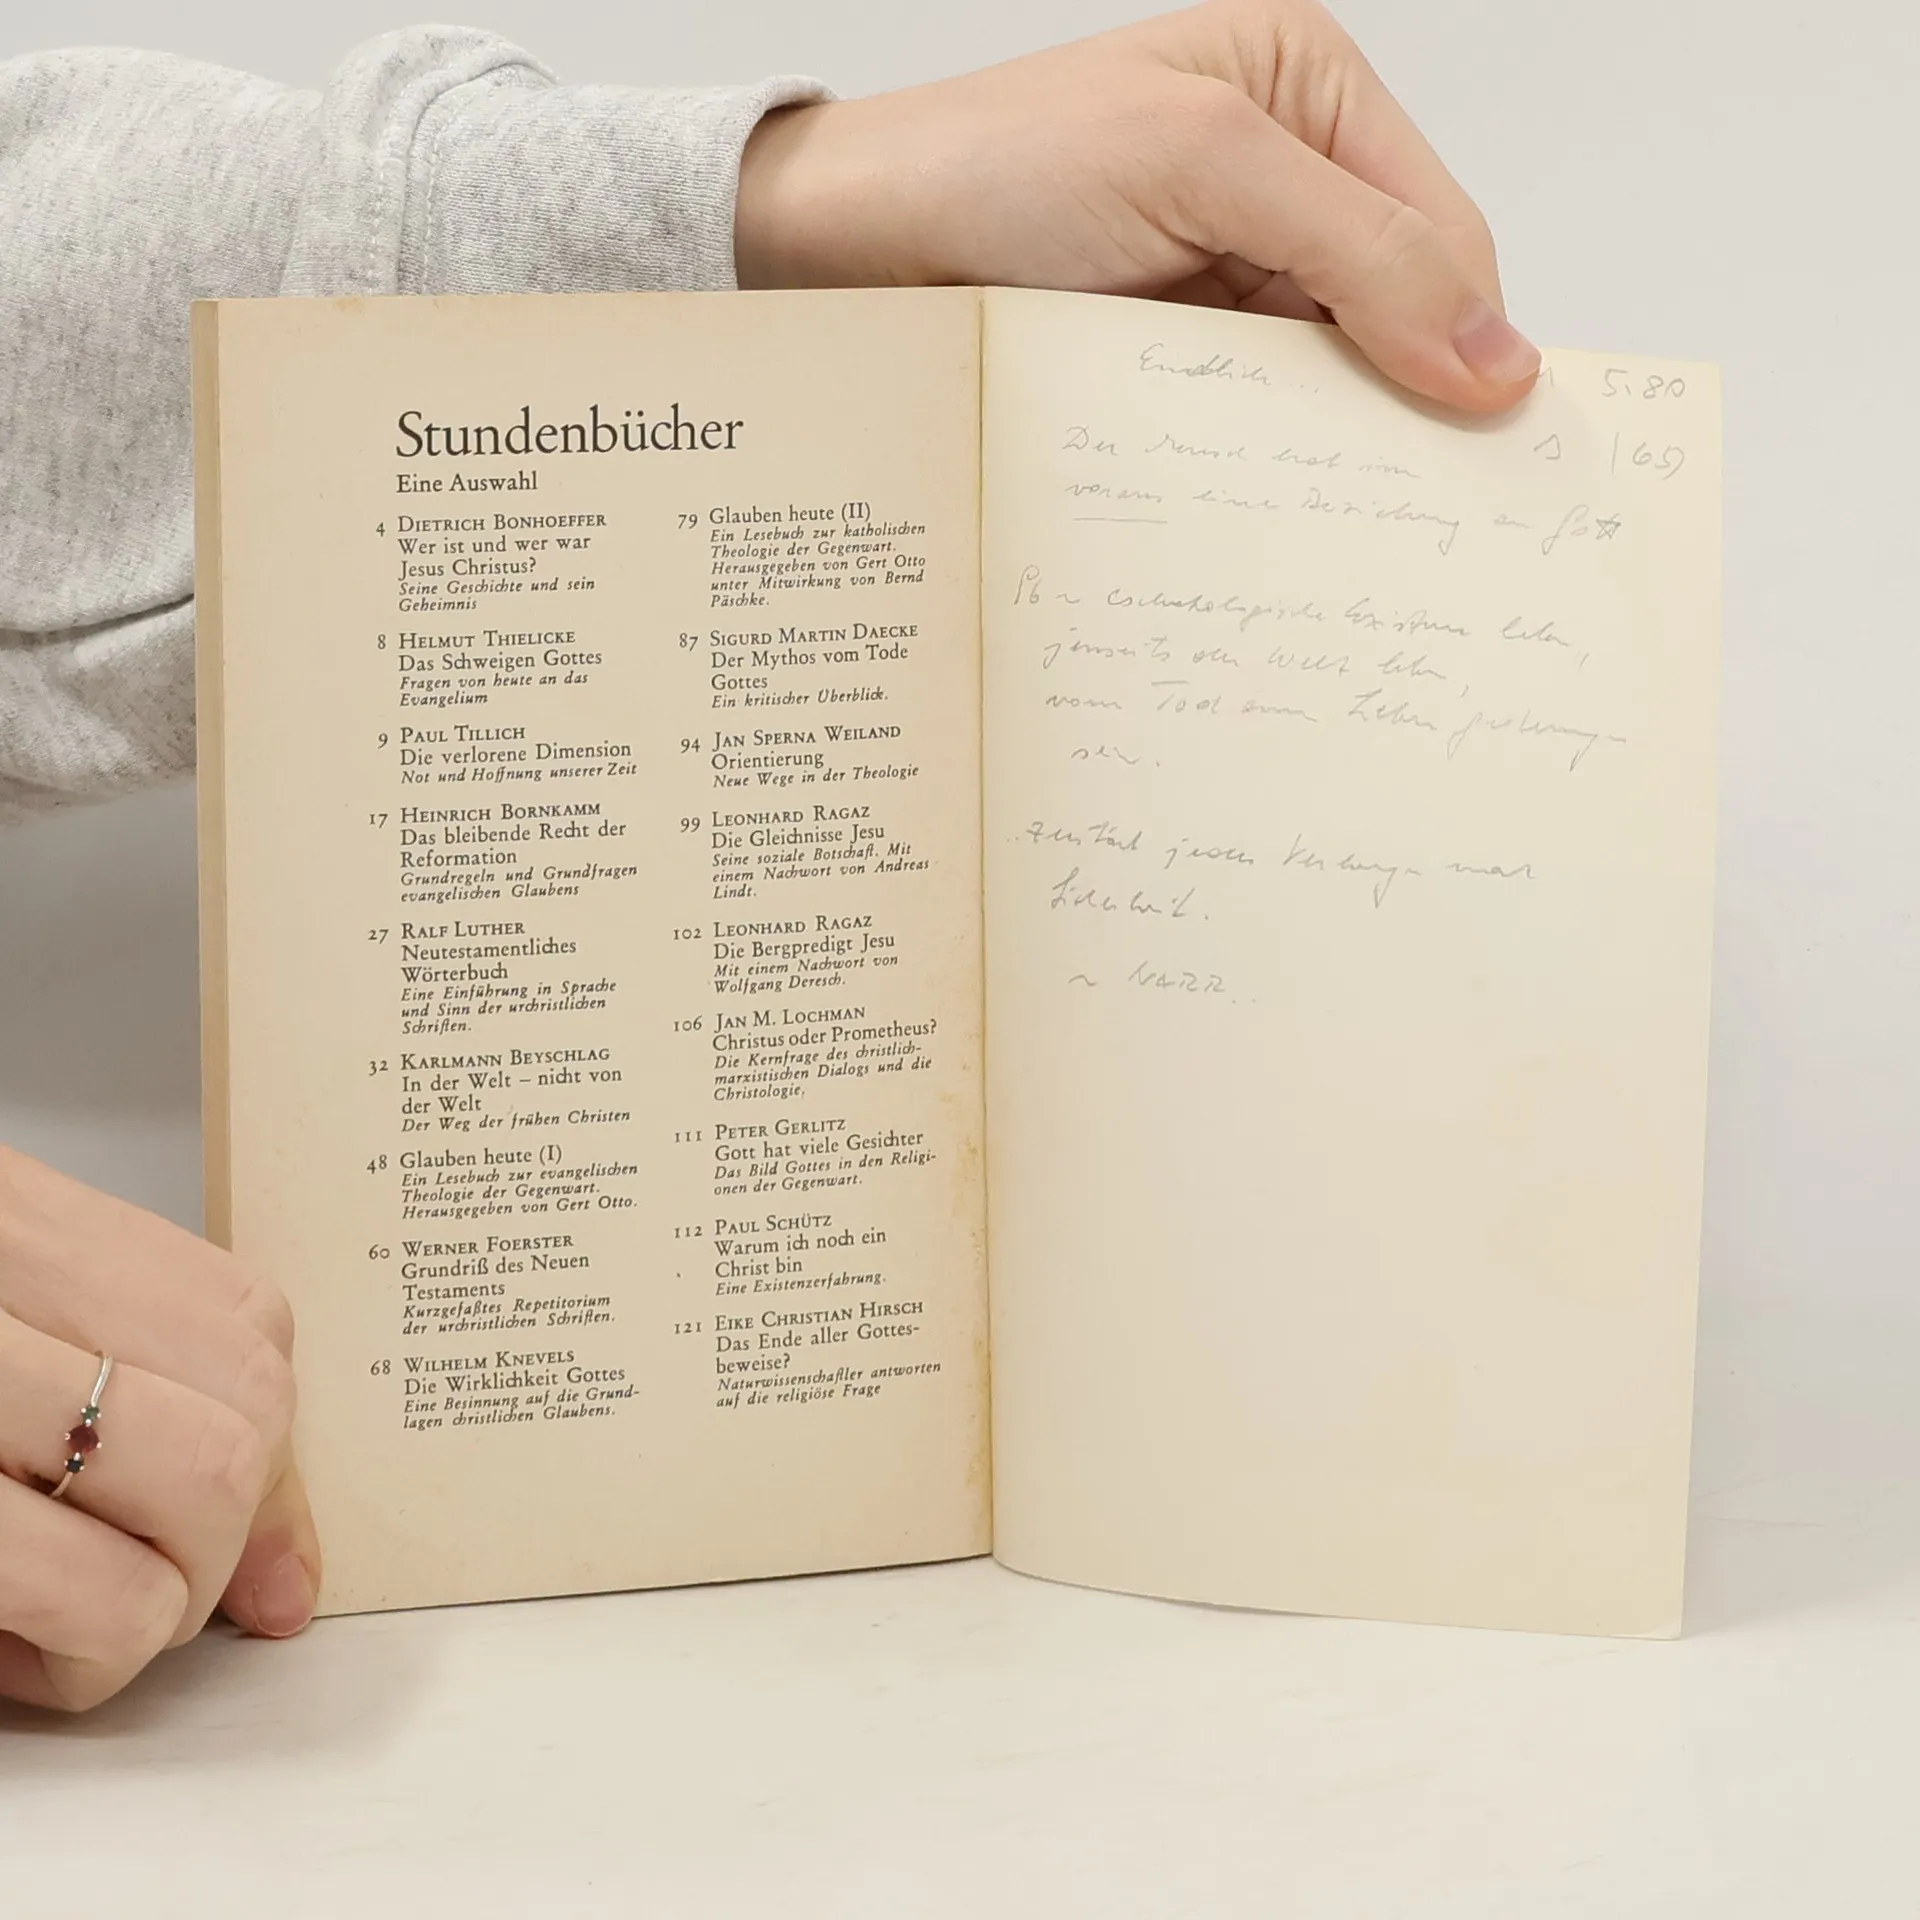 Stundenbücher
Eine Auswahl
4 DIETRICH BONHOEFFER
Wer ist und wer war
Jesus Christus?
Seine Geschichte und sein
Geheimnis
8 HELMUT THIELICKE
Das Schweigen Gottes
Fragen von heute an das
Evangelium
9 PAUL TILLICH
Die verlorene Dimension
Not und Hoffnung unserer Zeit
17 HEINRICH BORNKAMM
Das bleibende Recht der
Reformation
Grundregeln und Grundfragen
evangelischen Glaubens
27 RALF LUTHER
Neutestamentliches
Wörterbuch
Eine Einführung in Sprache
und Sinn der urchristlichen
Schriften.
32 KARLMANN BEYSCHLAG
In der Welt – nicht von
der Welt
Der Weg der frühen Christen
48 Glauben heute (I)
Ein Lesebuch zur evangelischen
Theologie der Gegenwart.
Herausgegeben von Gert Otto.
60 WERNER FOERSTER
Grundriß des Neuen
Testaments
Kurzgefaßtes Repetitorium
der urchristlichen Schriften.
68 WILHELM KNEVELS
Die Wirklichkeit Gottes
Eine Besinnung auf die Grund-
lagen christlichen Glaubens.
79 Glauben heute (II)
Ein Lesebuch zur katholischen
Theologie der Gegenwart.
Herausgegeben von Gert Otto
unter Mitwirkung von Bernd
Päschke.
87 SIGURD MARTIN DAECKE
Der Mythos vom Tode
Gottes
Ein kritischer Überblick.
94 JAN SPERNA WEILAND
Orientierung
Neue Wege in der Theologie
99 LEONHARD RAGAZ
Die Gleichnisse Jesu
Seine soziale Botschaft. Mit
einem Nachwort von Andreas
Lindt.
102 LEONHARD RAGAZ
Die Bergpredigt Jesu
Mit einem Nachwort von
Wolfgang Deresch.
106 JAN M. LOCHMAN
Christus oder Prometheus?
Die Kernfrage des christlich-
marxistischen Dialogs und die
Christologie.
111 PETER GERLITZ
Gott hat viele Gesichter
Das Bild Gottes in den Religi-
onen der Gegenwart.
112 PAUL SCHÜTZ
Warum ich noch ein
Christ bin
Eine Existenzerfahrung.
121 EIKE CHRISTIAN HIRSCH
Das Ende aller Gottes-
beweise?
Naturwissenschaftler antworten
auf die religiöse Frage
Endlich ...
5.80
(65)
Der Mensch hat im
voraus eine Beziehung zu Gott
eschatologische Existenz leben,
jenseits der Welt leben,
vom Tod zum Leben gedrungen
sein.
.. zerstört jedes Verlangen nach
Sicherheit.
~ NARR..